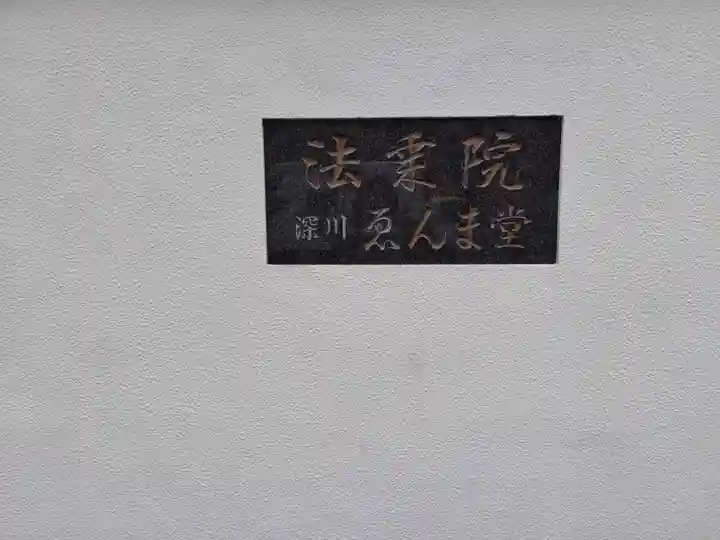 法乗院
深川ゑんま堂